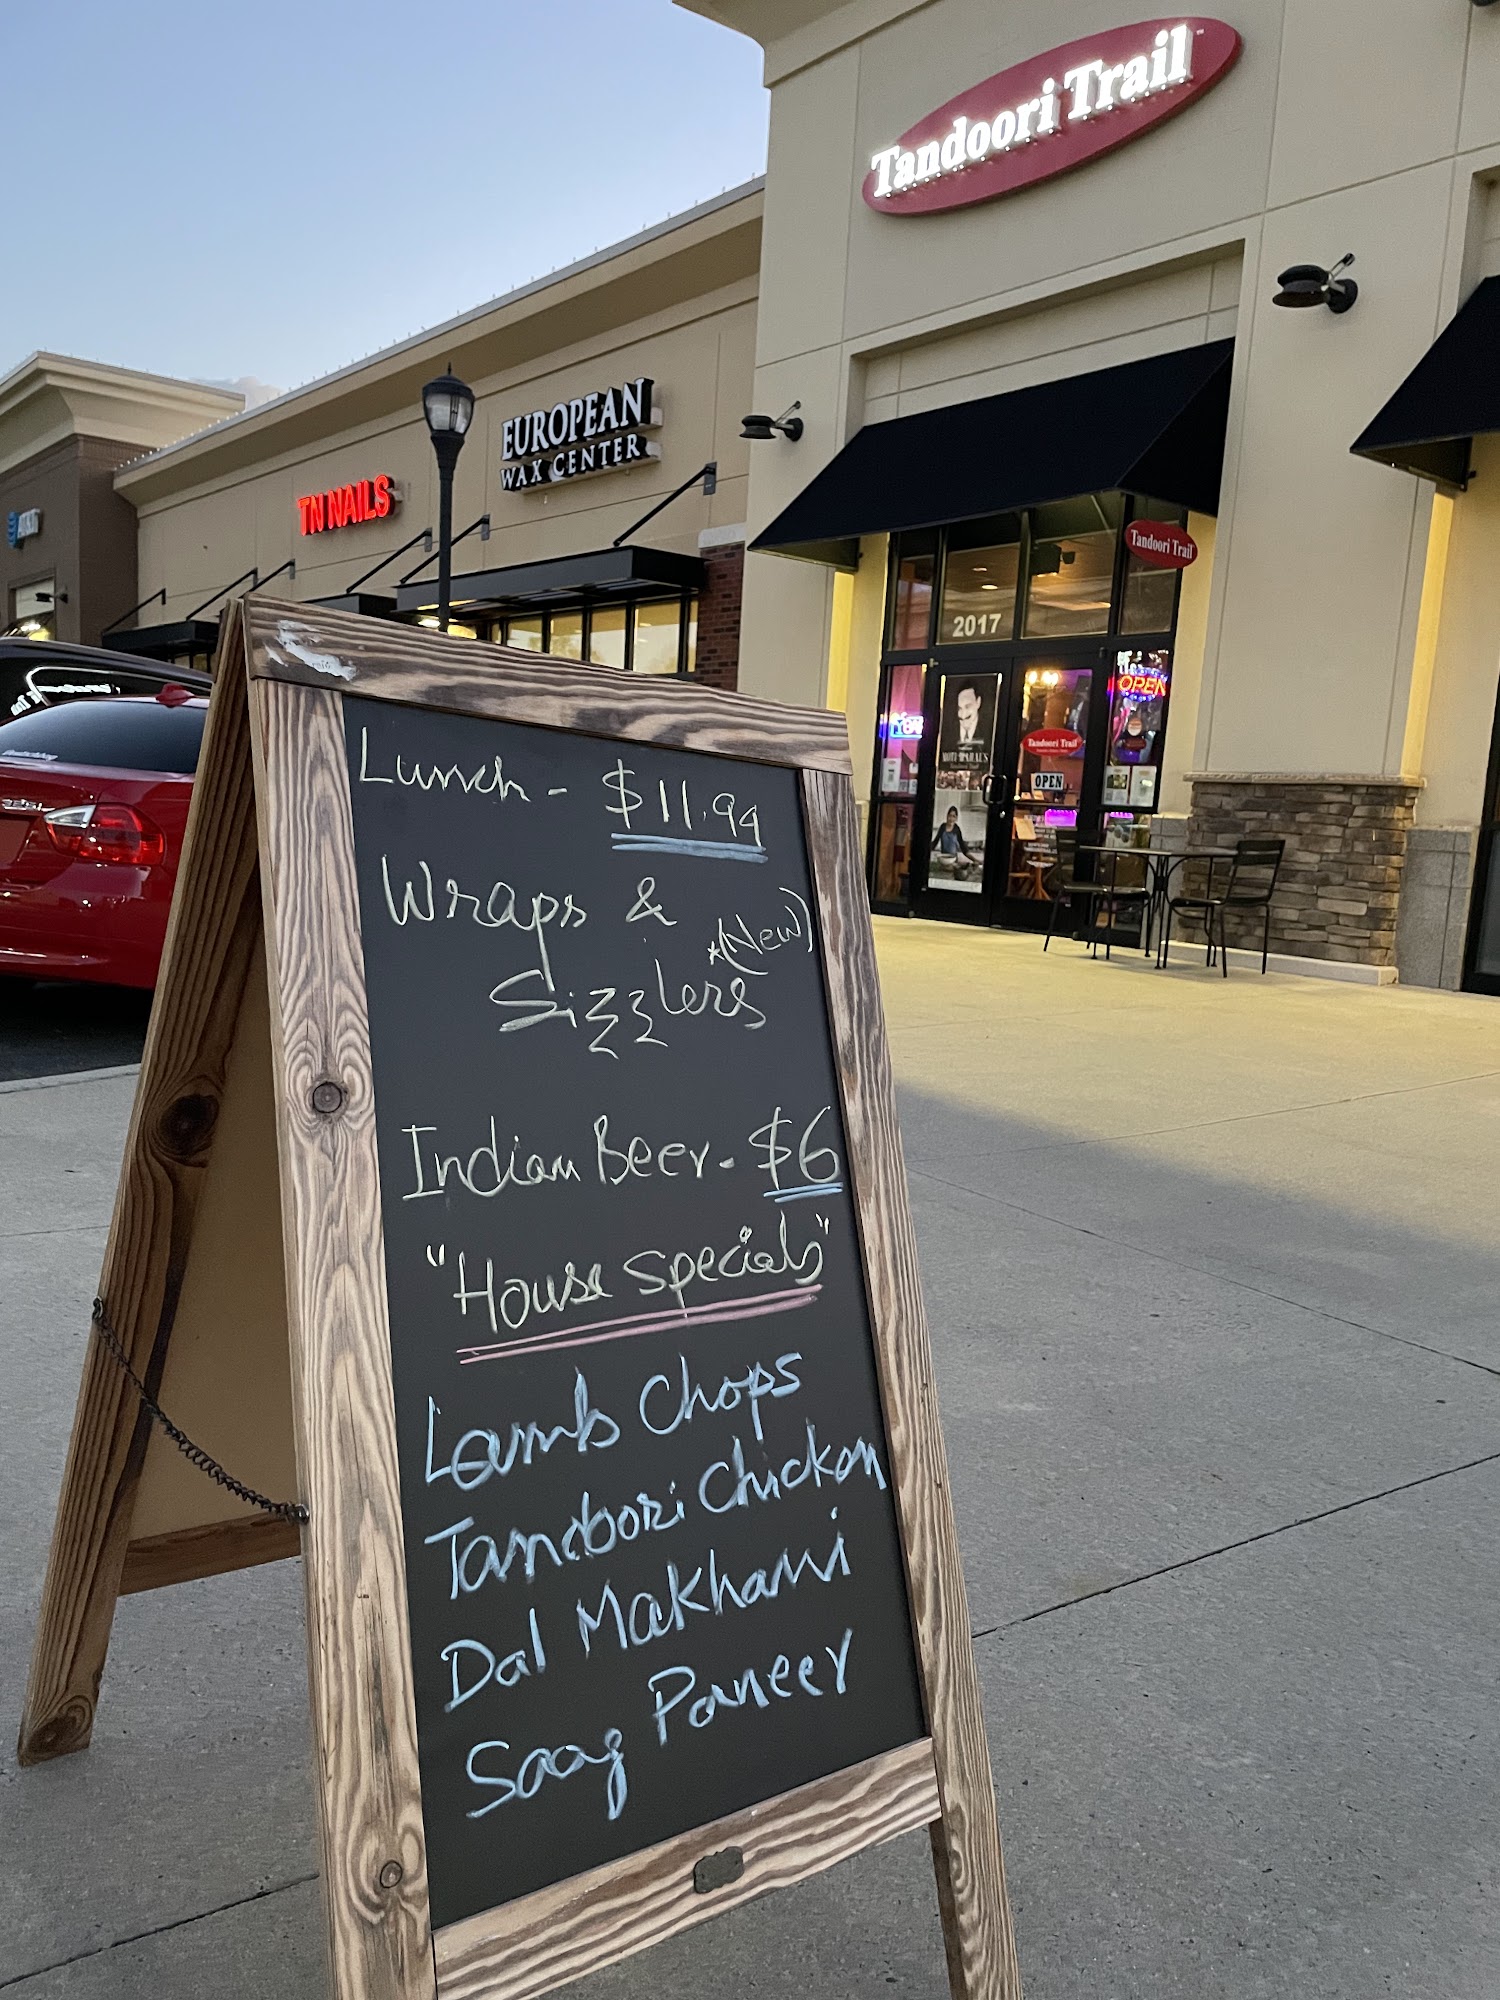 Tandoori Trail
EUROPEAN
WAX CENTER
TN NAILS
AT&T
Tandoori Trail
2017
OPEN
MOTI MAHAL'S
Tandoori Trail
OPEN
Lunch - $11.99
Wraps &
*(New)
Sizzlers
Indian Beer - $6
"House Specials"
Lamb Chops
Tandoori Chicken
Dal Makhani
Saag Paneer